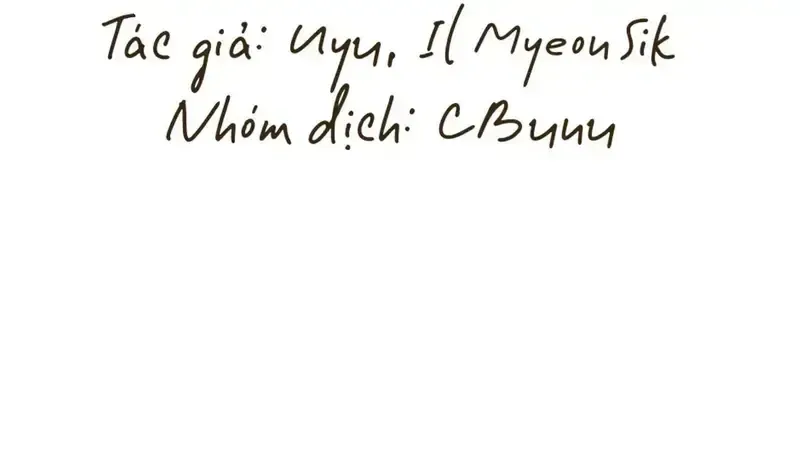 Tác giả: Uyu, Il MyeonSik
Nhóm dịch: CBunu